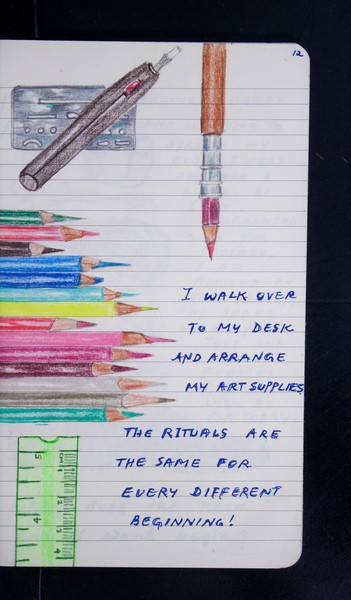 12
I WALK OVER
TO MY DESK
AND ARRANGE
MY ART SUPPLIES
THE RITUALS ARE
THE SAME FOR
EVERY DIFFERENT
BEGINNING!
5
4